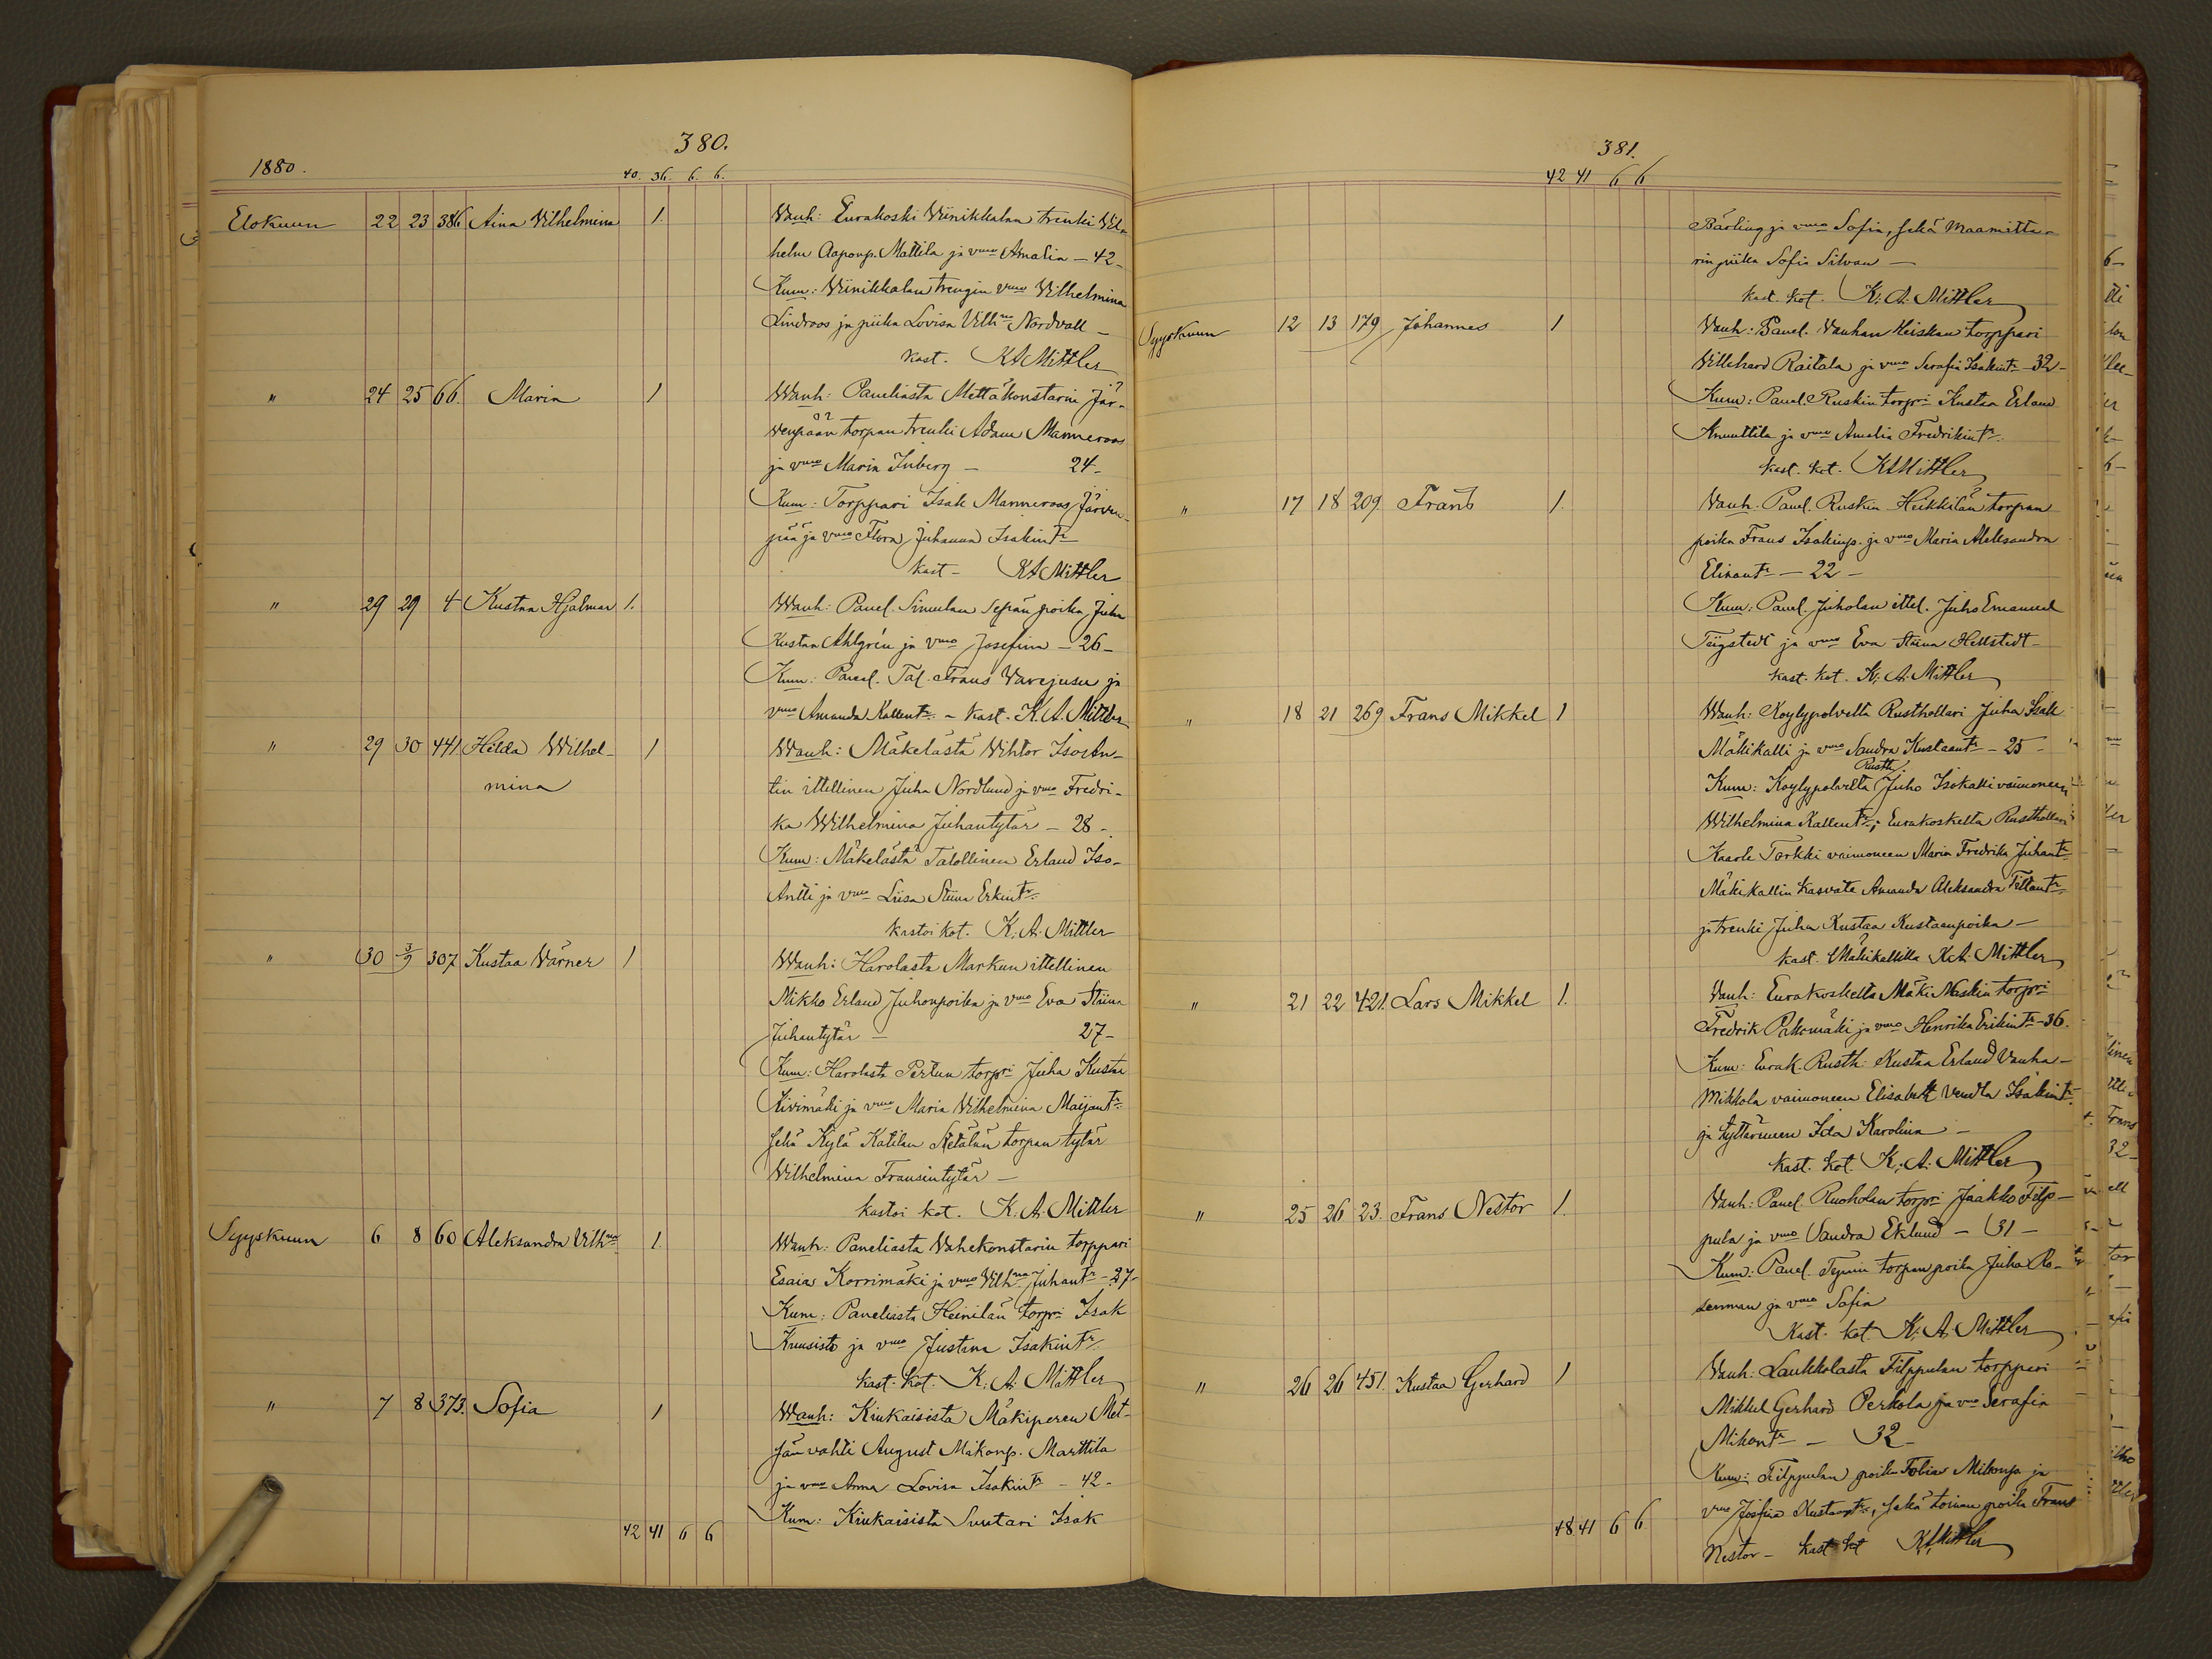 380.
1880.
40. 36. 6. 6.
Elokuun 22 23 386 Aina Vilhelmina 1. Vanh: Eurakoski Viinikkalan trenki Vil-
helm Aaponp. Mattila ja vmo Amalia — 42 -
Kum: Viinikkalan trengin vmo Vilhelmina
Lindroos ja piika Lovisa Vilhna Nordvall —
kast. KA Mittler
" 24 25 66. Maria 1 Wanh: Paneliasta Mettäkonstarin Jär-
venpään torpan trenki Adam Manneroos
ja vmo Maria Inberg — 24 -
Kum: Torppari Isak Manneroos Järven-
pää ja vmo Flora Juhanna Isakintr
kast — KA Mittler
" 29 29 4 Kustaa Hjalmar 1. Wanh: Panel. Simulan Sepän poika Juha
Kustaa Ahlgrén ja vmo Josefina — 26 —
Kum: Panel. Tal. Frans Varejusu ja
vmo Amanda Kallentr. — kast. K. A. Mittler
" 29 30 441 Hilda Wilhel- 1 Wanh: Mäkelästä Wihtor IsoAn-
mina tin ittellinen Juha Nordlund ja vmo Fredri-
ka Wilhelmina Juhantytär — 28 -
Kum: Mäkelästä Talollinen Erland Iso-
Antti ja vmo Liisa Stiina Erkintr.
kastoi kot. K. A. Mittler
" 30 3/9 307 Kustaa Värner 1 Wanh: Harolasta Markun ittellinen
Mikko Erland Juhonpoika ja vmo Eva Stiina
Juhantytär — 27 -
Kum: Harolasta Pertun torpri Juha Kustaa
Kivimäki ja vmo Maria Vilhelmina Maijantr.
sekä Kylä Katilan Ketälän torpan tytär
Wilhelmina Fransintytär —
kastoi kot. K. A. Mittler
Syyskuun 6 8 60 Aleksandra Vilhna 1. Wanh: Paneliasta Vahekonstarin torppari
Esaias Korrimäki ja vmo Vilhna Juhantr — 27 -
Kum: Paneliasta Heinilän torpri Isak
Kuusisto ja vmo Justina Isakintr.
kast. kot. K. A. Mittler
" 7 8 373. Sofia 1 Wanh: Kiukaisista Mäkiperen Met-
sän vahti August Mikonp. Marttila
ja vmo Anna Lovisa Isakintr — 42 -
Kum: Kiukaisista Suutari Isak
42 41 6 6
381.
42 41 6 6
Bärling ja vmo Sofia, sekä Maamitta-
rin piika Sofia Silvan —
kast. kot. K. A. Mittler
Syyskuun 12 13 179 Johannes 1 Vanh: Panel. Vanhan Heiskan torppari
Villehard Raitala ja vmo Serafia Isakintr — 32 -
Kum: Panel. Ruskin torpri Kustaa Erland
Knuuttila ja vmo Amalia Fredrikintr.
kast. kot. KA Mittler
" 17 18 209 Frans 1. Vanh. Panel. Ruskin Heikkilän torpan
poika Frans Isakinp. ja vmo Maria Aleksandra
Eliaantr — 22 —
Kum: Panel. Juholan ittel. Juho Emanuel
Tiigstedt ja vmo Eva Stiina Hellstedt —
kast. kot. K. A. Mittler
" 18 21 269 Frans Mikkel 1 Wanh: Köylypolvelta Rusthollari Juha Isak
Mäkikalli ja vmo Sandra Kustaantr — 25 —
Kum: Köylypolvelta Rusth. Juho Isokalli vaimoneen
Wilhelmina Kallentr; Eurakoskelta Rusthollari
Kaarle Torkki vaimoneen Maria Fredrika Juhantr
Mäkikallin kasvate Amanda Aleksandra
ja trenki Juha Kustaa Kustaanpoika —
kast. Mäkikallilla K. A. Mittler
" 21 22 421. Lars Mikkel 1. Vanh: Eurakoskelta Mäki Naskin torpri
Fredrik Pakomäki ja vmo Henrika Erikintr — 36.
Kum: Eurak. Rusth: Kustaa Erland Vanha-
Mikkola vaimoneen Elisabeth Vendla Isakintr
ja tyttärineen Ida Karolina —
kast. kot. K. A. Mittler
" 25 26 23. Frans Nestor 1. Vanh: Panel. Ruoholan torpri Jaakko Filp-
pula ja vmo Sandra Eklund — 31 —
Kum: Panel. torpan poika Juha Ro-
senman ja vmo Sofia
kast. kot. K. A. Mittler
" 26 26 451. Kustaa Gerhard 1 Vanh: Laukkolasta Filppulan torppari
Mikkel Gerhard Perkola ja vmo Serafia
Mikontr — 32 -
Kum: Filppulan poika Tobias Mikonp. ja
vmo Josefina Kustaantr, sekä toinen poika Frans
Nestor — kast kot KA Mittler
48 41 6 6